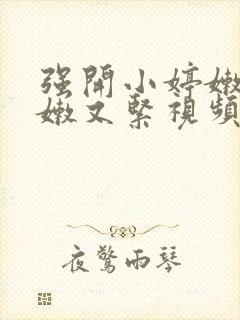 强開小婷嫩
嫩又緊視頻
夜驚雨琴